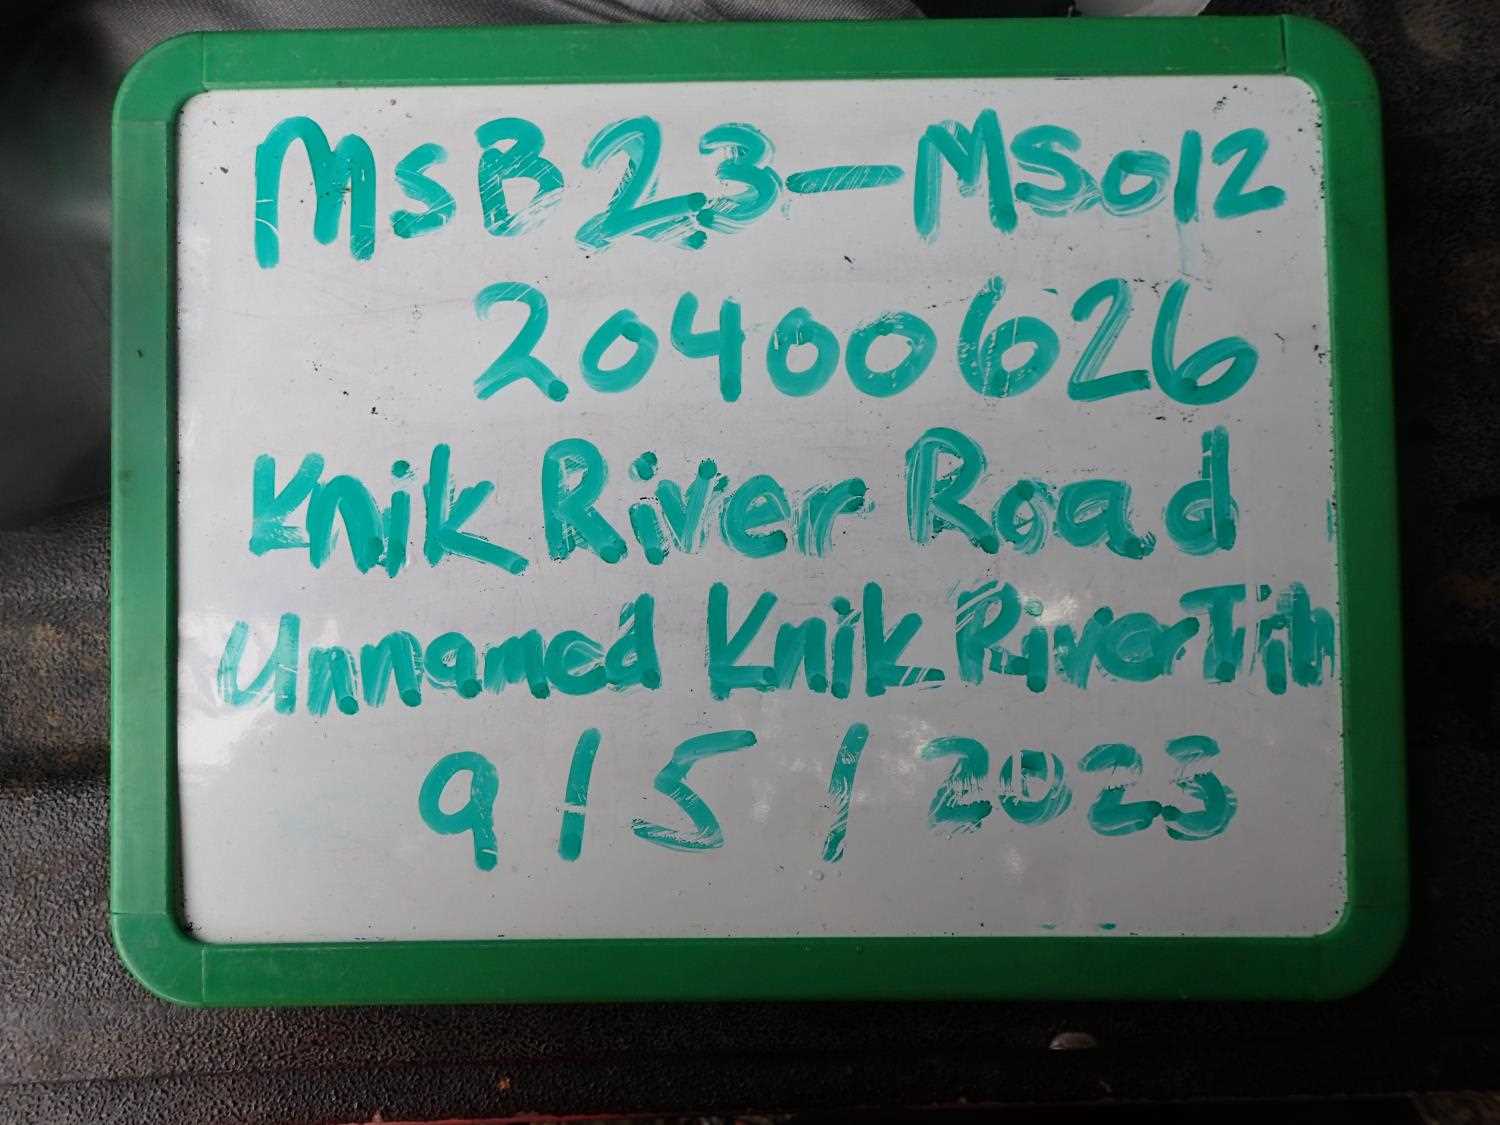 MSB23-MS012
20400626
Knik River Road
Unnamed Knik River Trib
9/5/2023